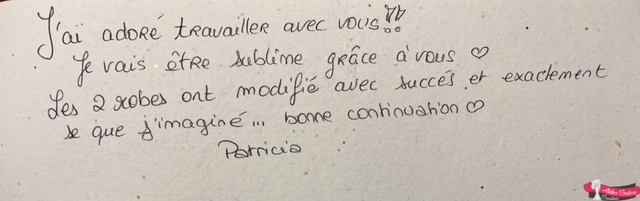 J'ai adoré travailler avec vous!!
Je vais être sublime grâce à vous ♡
Les 2 robes ont modifié avec succès et exactement
se que j'imaginé... bonne continuation ♡
Patricia